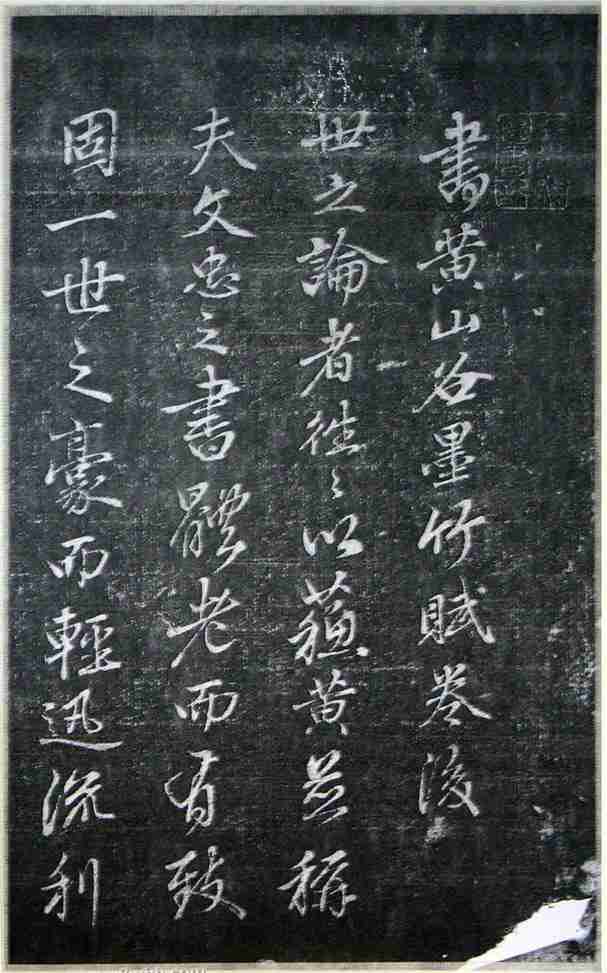 書黄山谷墨竹賦卷後
世之論者往〻以蘇黄並稱
夫文忠之書體老而有致
固一世之豪而輕迅流利